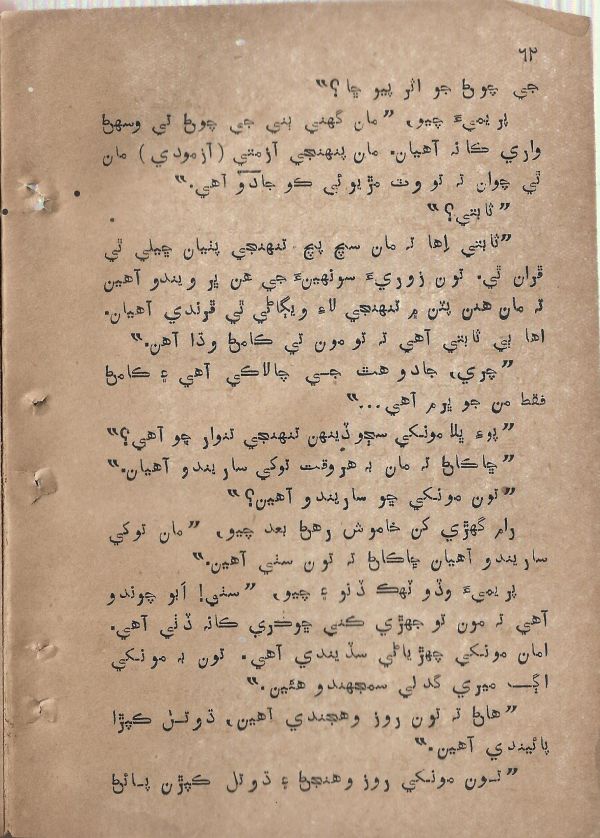 ٦٢
جي چوڻ جو اثر پيو ڇا؟“
پريميءَ چيو، ”مان گهڻي ٻني جي چوڻ تي وسهڻ
واري ڪانہ آهيان. مان پنهنجي آزمتي (آزمودي) مان
ٿي چوان تہ تو وٽ مڙيوئي ڪو جادو آهي.“
”ثابتي؟“
”ثابتي اِها تہ مان سڄ پڄ تنهنجي پٺيان ڇيلي ٿي
ڦران ٿي. تون زوريءَ سونهينءَ جي هن ڀر ويندو آهين
تہ مان هنن پٽن ۾ تنهنجي لاءِ ويڳاڻي ٿي ڦرندي آهيان.
اها ٻي ثابتي آهي تہ تو مون تي ڪامڻ وڌا آهن.“
”چري، جادو هٿ جسي چالاڪي آهي ۽ ڪامڻ
فقط من جو ڀرم آهي...“
”پوءِ ڀلا مونکي سڄو ڏينهن تنهنجي تنوار ڇو آهي؟“
”ڇاڪاڻ تہ مان بہ هر وقت توکي ساريندو آهيان.“
”تون مونکي ڇو ساريندو آهين؟“
رام گهڙي کن خاموش رهڻ بعد چيو، ”مان توکي
ساريندو آهيان ڇاڪاڻ تہ تون سٺي آهين.“
پريميءَ وڏو ٽهڪ ڏنو ۽ چيو، ”سٺي! اَبو چوندو
آهي تہ مون تو جهڙي ڪني ڇوڪري ڪانہ ڏٺي آهي.
امان مونکي ڇهڙياڻي سڏيندي آهي. تون بہ مونکي
اڳ ميري گدلي سمجهندو هئين.“
”هاڻ تہ تون روز وهنجندي آهين، ڌوتل ڪپڙا
پائيندي آهين.“
”تون مونکي روز وهنجڻ ۽ ڌوتل ڪپڙن پائڻ